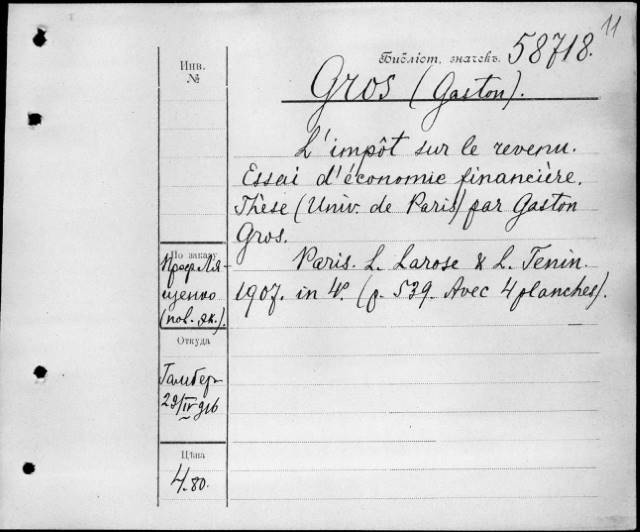 11
Библіот. значекъ. 58718.
Инв.
№
Gros (Gaston).
L'impôt sur le revenu.
Essai d'économie financière.
Thèse (Univ. de Paris) par Gaston
Gros.
Paris. L. Larose & L. Tenin.
1907. in 4º. (p. 539. Avec 4 planches).
По заказу
Проф. Ля-
щенко
(пов. эк.).
Откуда
Гамбер
29/IV 916
Цѣна
4.80.